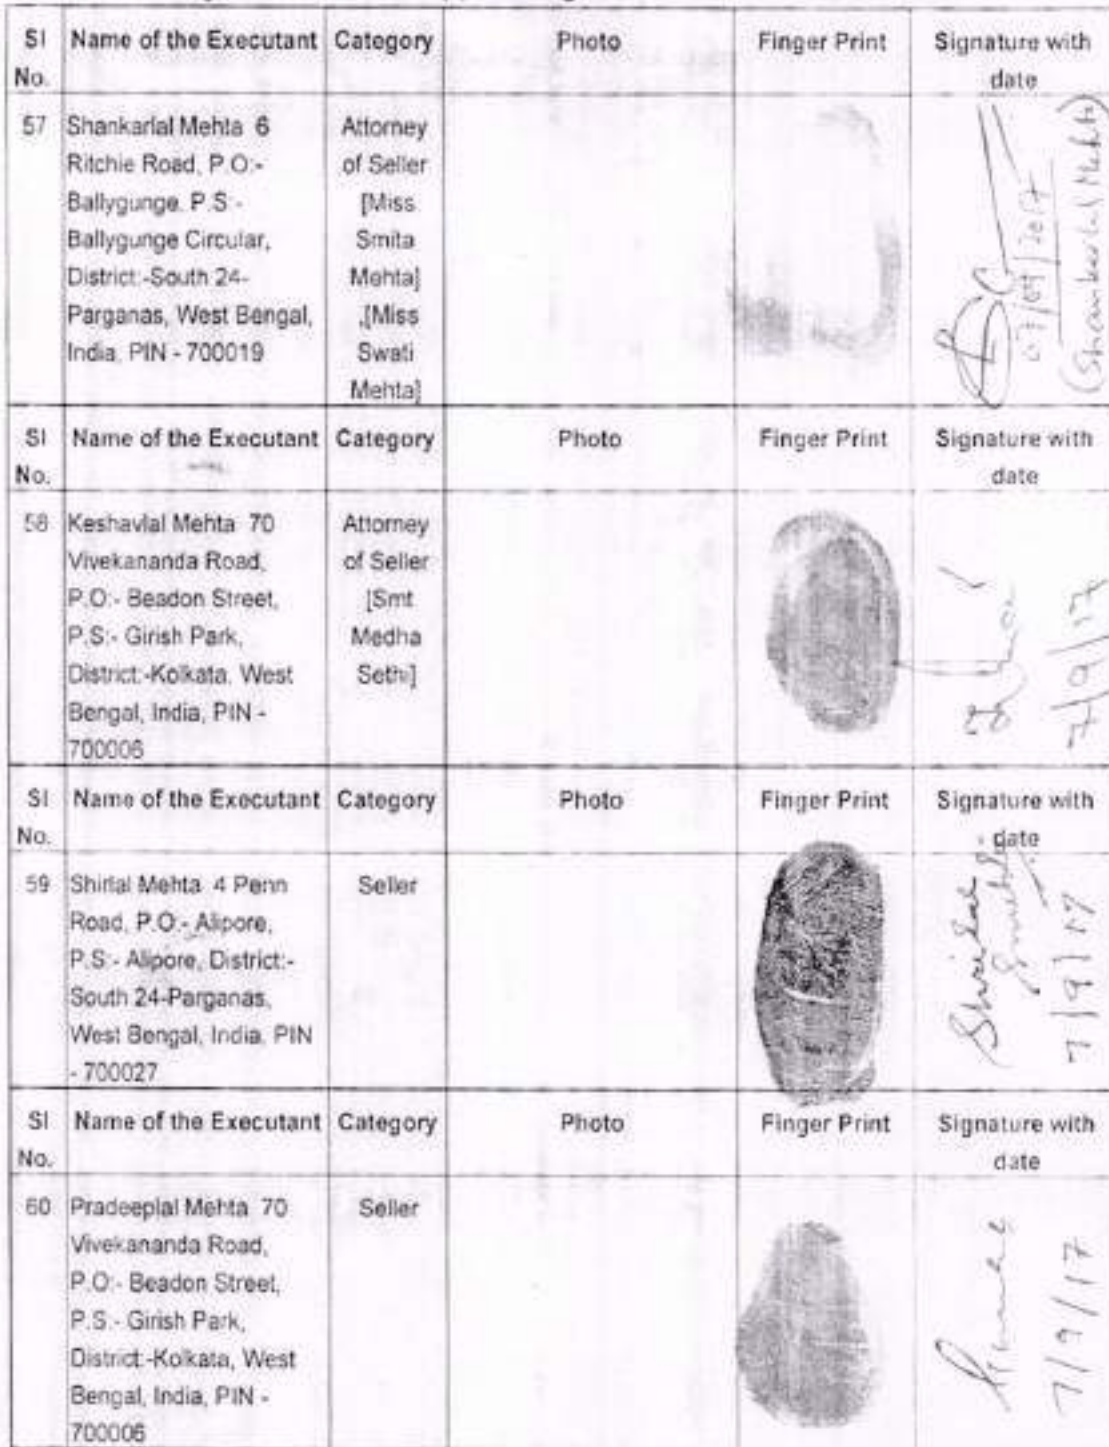 Sl No. Name of the Executant Category Photo Finger Print Signature with date
57 Shankarlal Mehta 6 Ritchie Road, P.O:- Ballygunge, P.S:- Ballygunge Circular, District:-South 24-Parganas, West Bengal, India, PIN - 700019
Attorney of Seller [Miss Smita Mehta] ,[Miss Swati Mehta]
07/09/2017
(Shankarlal Mehta)
Sl No. Name of the Executant Category Photo Finger Print Signature with date
58 Keshavlal Mehta 70 Vivekananda Road, P.O:- Beadon Street, P.S:- Girish Park, District:-Kolkata, West Bengal, India, PIN - 700006
Attorney of Seller [Smt Medha Sethi]
7/9/17
Sl No. Name of the Executant Category Photo Finger Print Signature with date
59 Shirlal Mehta 4 Penn Road, P.O:- Alipore, P.S:- Alipore, District:- South 24-Parganas, West Bengal, India, PIN - 700027
Seller
7/9/17
Sl No. Name of the Executant Category Photo Finger Print Signature with date
60 Pradeeplal Mehta 70 Vivekananda Road, P.O:- Beadon Street, P.S:- Girish Park, District:-Kolkata, West Bengal, India, PIN - 700006
Seller
7/9/17